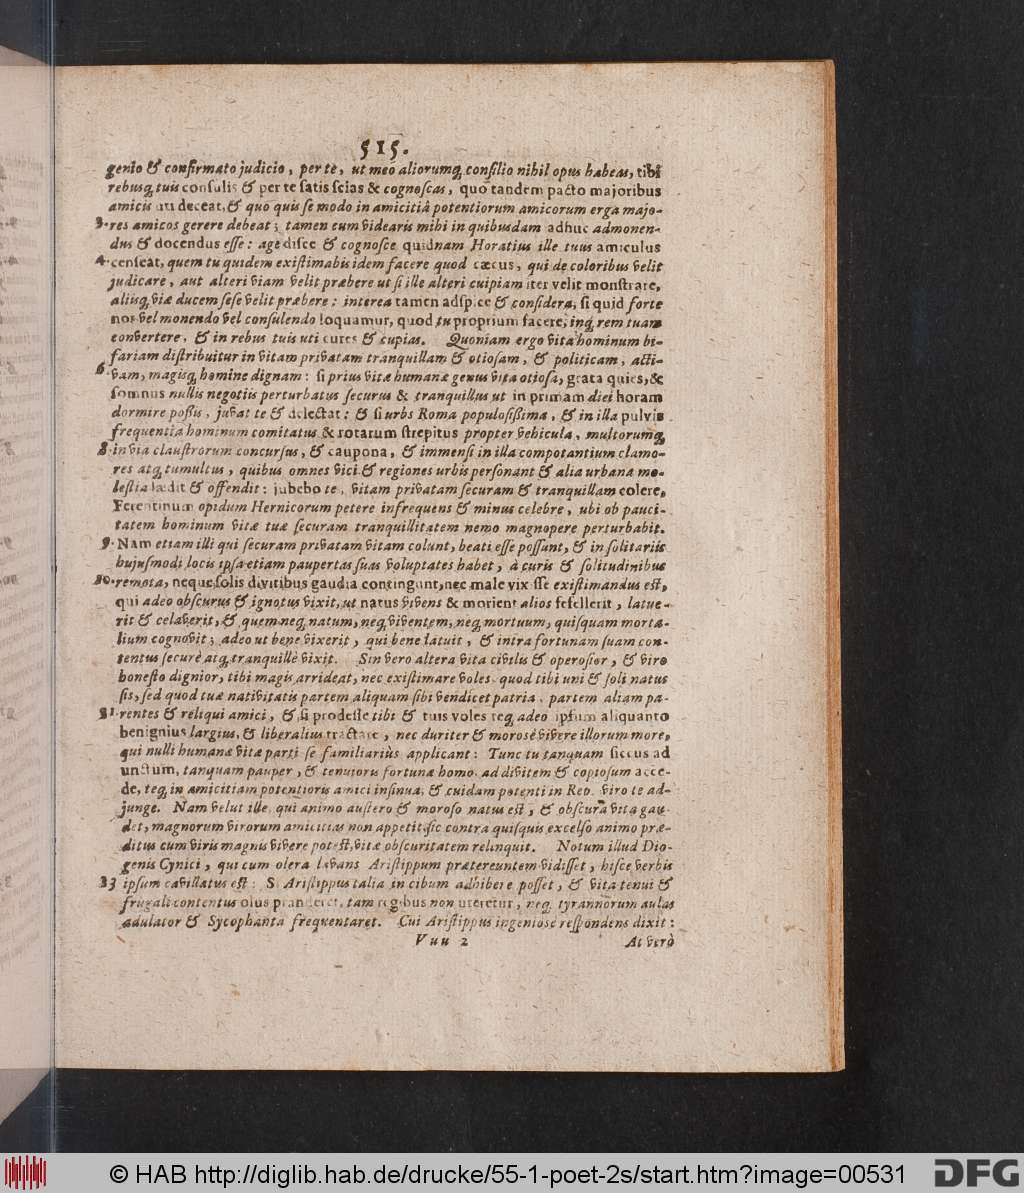 515.
genio & confirmato judicio, per te, ut meo aliorumq; consilio nihil opus habeas, tibi
rebusq; tuis consulis & per te satis scias & cognoscas, quo tandem pacto majoribus
amicis uti deceat, & quo quis se modo in amicitiâ potentiorum amicorum erga majo-
3. res amicos gerere debeat; tamen cum videaris mihi in quibusdam adhuc admonen-
dus & docendus esse: age disce & cognosce quidnam Horatius ille tuus amiculus
4. censeat, quem tu quidem existimabis idem facere quod cæcus, qui de coloribus velit
judicare, aut alteri viam velit præbere ut si ille alteri cuipiam iter velit monstrare,
aliisq; viæ ducem sese velit præbere: interea tamen adspice & considera, si quid forte
nos vel monendo vel consulendo loquamur, quod tu proprium facere, inq; rem tuam
convertere, & in rebus tuis uti cures & cupias. Quoniam ergo vita hominum bi-
fariam distribuitur in vitam privatam tranquillam & otiosam, & politicam, acti-
6. vam, magisq; homine dignam: si prius vitæ humanæ genus vita otiosa, grata quies, &
somnus nullis negotiis perturbatus securus & tranquillus ut in primam diei horam
dormire possis, juvat te & delectat: & si urbs Roma populosissima, & in illa pulvis
frequentia hominum comitatus & rotarum strepitus propter vehicula, multorumq;
8. in via claustrorum concursus, & caupona, & immensi in illa compotantium clamo-
res atq; tumultus, quibus omnes vici & regiones urbis personant & alia urbana mo-
lestia lædit & offendit: jubebo te, vitam privatam securam & tranquillam colere,
Ferentinum opidum Hernicorum petere infrequens & minus celebre, ubi ob pauci-
tatem hominum vitæ tuæ securam tranquillitatem nemo magnopere perturbabit.
9. Nam etiam illi qui securam privatam vitam colunt, beati esse possunt, & in solitariis
hujusmodi locis ipsa etiam paupertas suas voluptates habet, à curis & solitudinibus
10. remota, neque solis divitibus gaudia contingunt, nec male vixisse existimandus est,
qui adeo obscurus & ignotus vixit, ut natus vivens & moriens alios fefellerit, latue-
rit & celaverit, & quem neq; natum, neq; viventem, neq; mortuum, quisquam morta-
lium cognovit; adeo ut bene vixerit, qui bene latuit, & intra fortunam suam con-
tentus securè atq; tranquillè vixit. Sin vero altera vita civilis & operosior, & viro
honesto dignior, tibi magis arrideat, nec existimare voles quod tibi uni & soli natus
sis, sed quod tuæ nativitatis partem aliquam sibi vendicet patria, partem aliam pa-
11. rentes & reliqui amici, & si prodesse tibi & tuis voles teq; adeo ipsum aliquanto
benignius largius, & liberalius tractare, nec duriter & morosè vivere illorum more,
qui nulli humanæ vitæ parti se familiariùs applicant: Tunc tu tanquam siccus ad
unctum, tanquam pauper, & tenuioris fortunæ homo ad divitem & copiosum acce-
de, teq; in amicitiam potentioris amici insinua, & cuidam potenti in Rep. viro te ad-
junge. Nam velut ille qui animo austero & moroso natus est, & obscurâ vita gau-
det, magnorum virorum amicitias non appetit: sic contra quisquis excelso animo præ-
ditus cum viris magnis vivere potest, vitæ obscuritatem relinquit. Notum illud Dio-
genis Cynici, qui cum olera lavans Aristippum prætereuntem vidisset, hisce verbis
13 ipsum cavillatus est: Si Aristippus talia in cibum adhibere posset, & vita tenui &
frugali contentus olus pranderet, tam regibus non uteretur, neq; tyrannorum aulas
adulator & Sycophanta frequentaret. Cui Aristippus ingeniose respondens dixit:
Vuu 2 At verò
© HAB http://diglib.hab.de/drucke/55-1-poet-2s/start.htm?image=00531 DFG